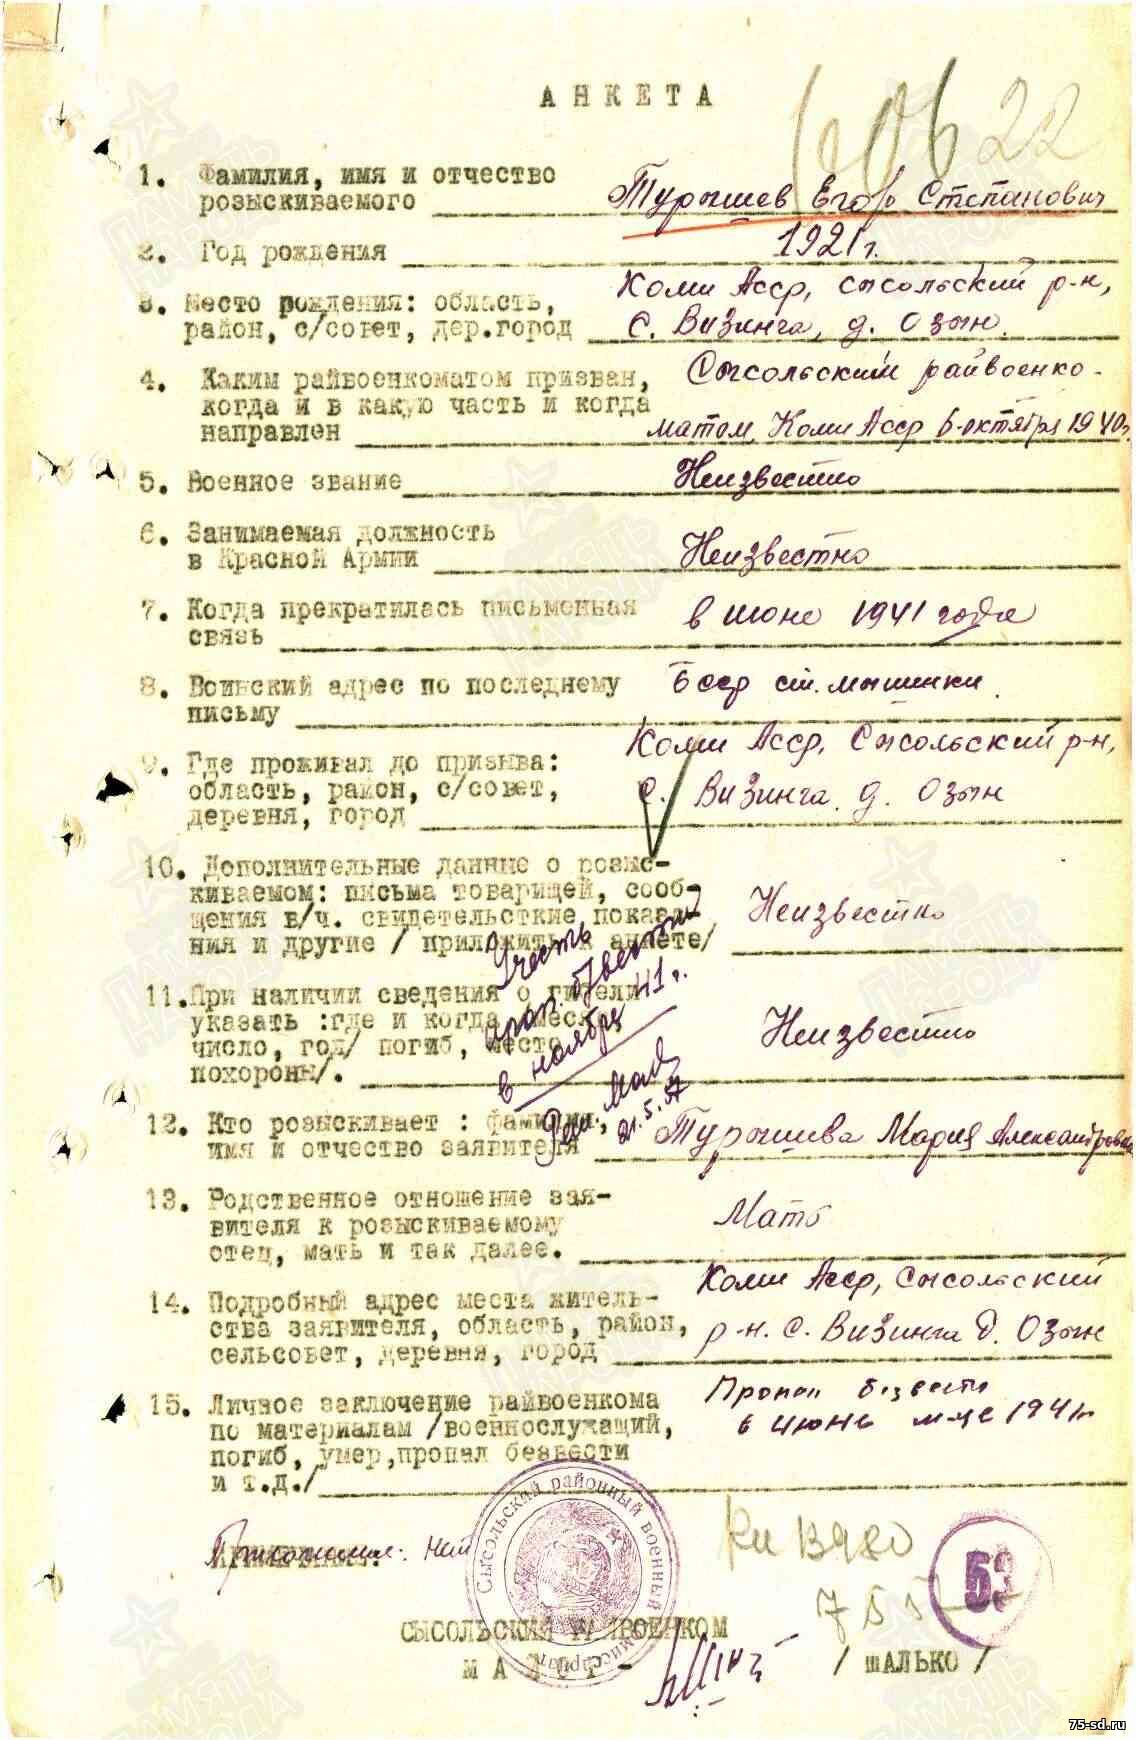 АНКЕТА
1. Фамилия, имя и отчество
розыскиваемого Турышев Егор Степанович
2. Год рождения 1921 г.
3. Место рождения: область, Коми Асср, сысольский р-н,
район, с/совет, дер.город с. Визинга, д. Озын.
4. Каким райвоенкоматом призван, Сысольский райвоенко-
когда и в какую часть и когда
направлен матом, Коми Асср 6-октября 1940г
5. Военное звание Неизвестно
6. Занимаемая должность
в Красной Армии Неизвестно
7. Когда прекратилась письменная в июне 1941 года
связь
8. Воинский адрес по последнему Бсср ст. мышинки
письму
Коми Асср, Сысольский р-н,
9. Где проживал до призыва:
область, район, с/совет, с. Визинга д. Озын
деревня, город
10. Дополнительные данные о розыс-
киваемом: письма товарищей, сооб-
щения в/ч. свидетельсткие показа-
ния и другие / приложить к анкете/ Неизвестно
Учесть
проп. б/вести
в ноябре 41 г.
21.5.47
11.При наличии сведения о гибели
указать :где и когда /месяц
число, год/ погиб, место Неизвестно
похороны/.
12. Кто розыскивает : фамилия,
имя и отчество заявителя Турышева Мария Александровна
13. Родственное отношение зая-
вителя к розыскиваемому Мать
отец, мать и так далее.
Коми Асср, Сысольский
14. Подробный адрес места житель-
ства заявителя, область, район, р-н. с. Визинга д. Озын
сельсовет, деревня, город
15. Личное заключение райвоенкома Пропал безвести
по материалам /военнослужащий, в июнь м-це 1941г
погиб, умер,пропал безвести
и т.д./
Приложение: нет
Сысольский районный военный комиссариат
53
СЫСОЛЬСКИЙ РАЙВОЕНКОМ
МАЙОР - / ШАЛЬКО /
ПАМЯТЬ НАРОДА
75-sd.ru